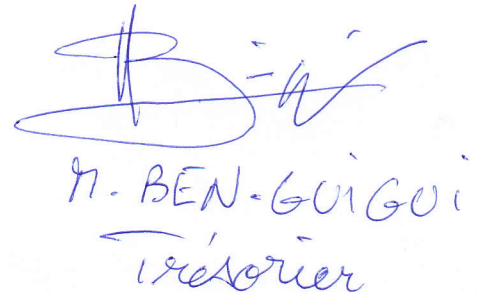 M. BEN-GUIGUI
Trésorier